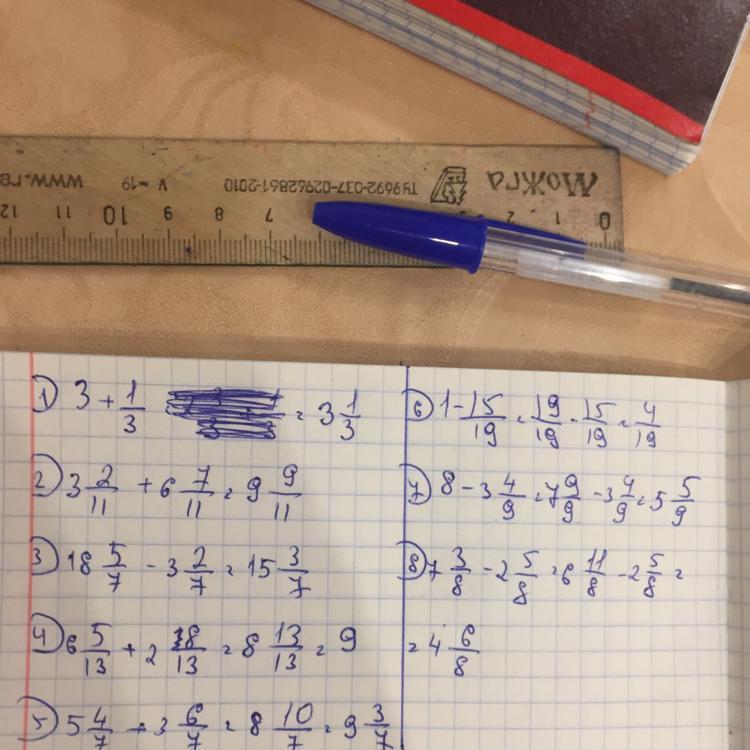 Можга
ТУ9692-037-02962861-2010
V=19
www.re
0 1 2 7 8 9 10 11 12
1) 3 + 1/3 = 3 1/3
2) 3 2/11 + 6 7/11 = 9 9/11
3) 18 5/7 - 3 2/7 = 15 3/7
4) 6 5/13 + 2 8/13 = 8 13/13 = 9
5) 5 4/7 + 3 6/7 = 8 10/7 = 9 3/7
6) 1 - 15/19 = 19/19 - 15/19 = 4/19
7) 8 - 3 4/9 = 7 9/9 - 3 4/9 = 5 5/9
8) 7 3/8 - 2 5/8 = 6 11/8 - 2 5/8 =
= 4 6/8